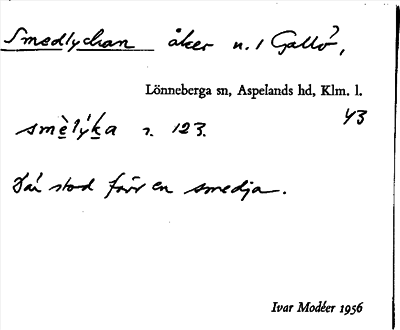 Smedlyckan åker n. 1 Gallö,
Lönneberga sn, Aspelands hd, Klm. l.
43
smèly̆ka r. 123.
Där stod förr en smedja.
Ivar Modéer 1956